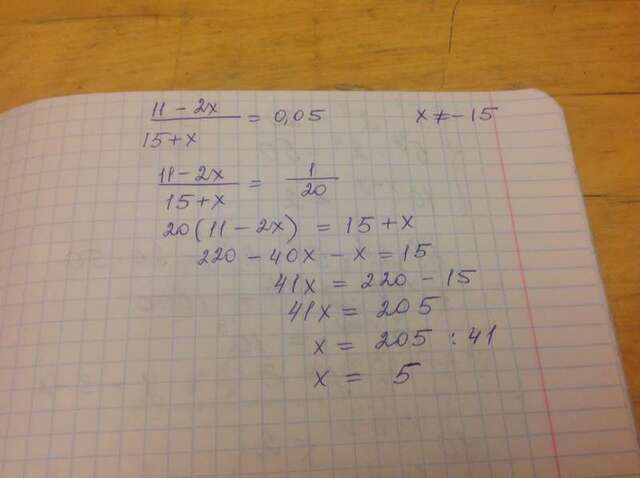 (11 - 2x)/(15 + x) = 0,05 x ≠ -15
(11 - 2x)/(15 + x) = 1/20
20(11 - 2x) = 15 + x
220 - 40x - x = 15
41x = 220 - 15
41x = 205
x = 205 : 41
x = 5